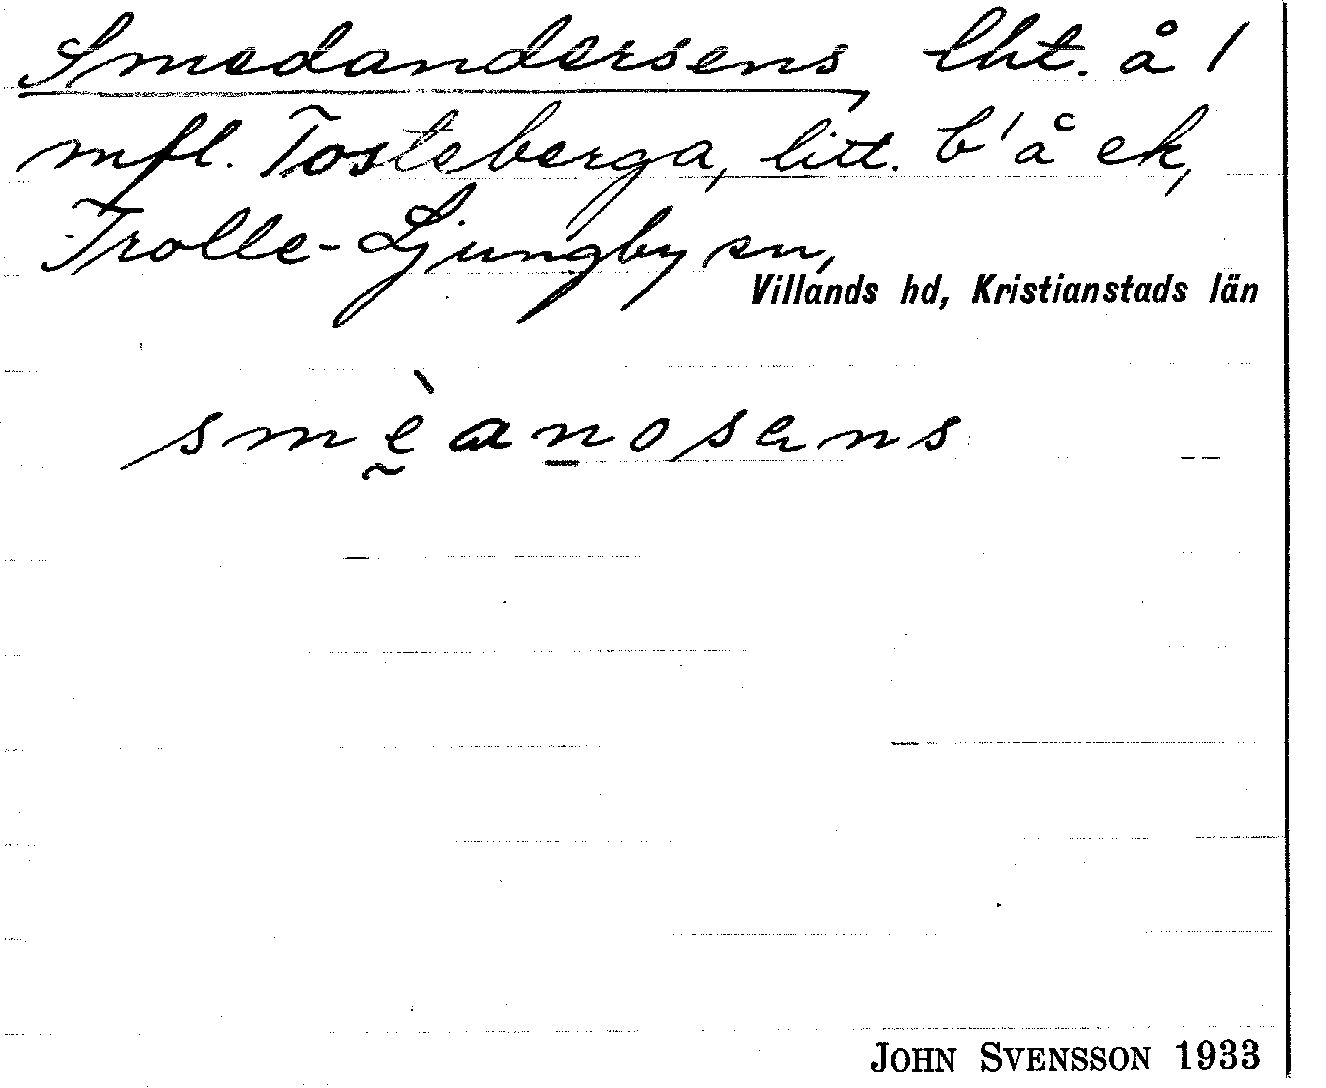 Smedandersens, lht. å 1
mfl. Tosteberga, litt. b' å ek,
Trolle-Ljungby sn,
Villands hd, Kristianstads län
smḛ̀an̲osens
JOHN SVENSSON 1933